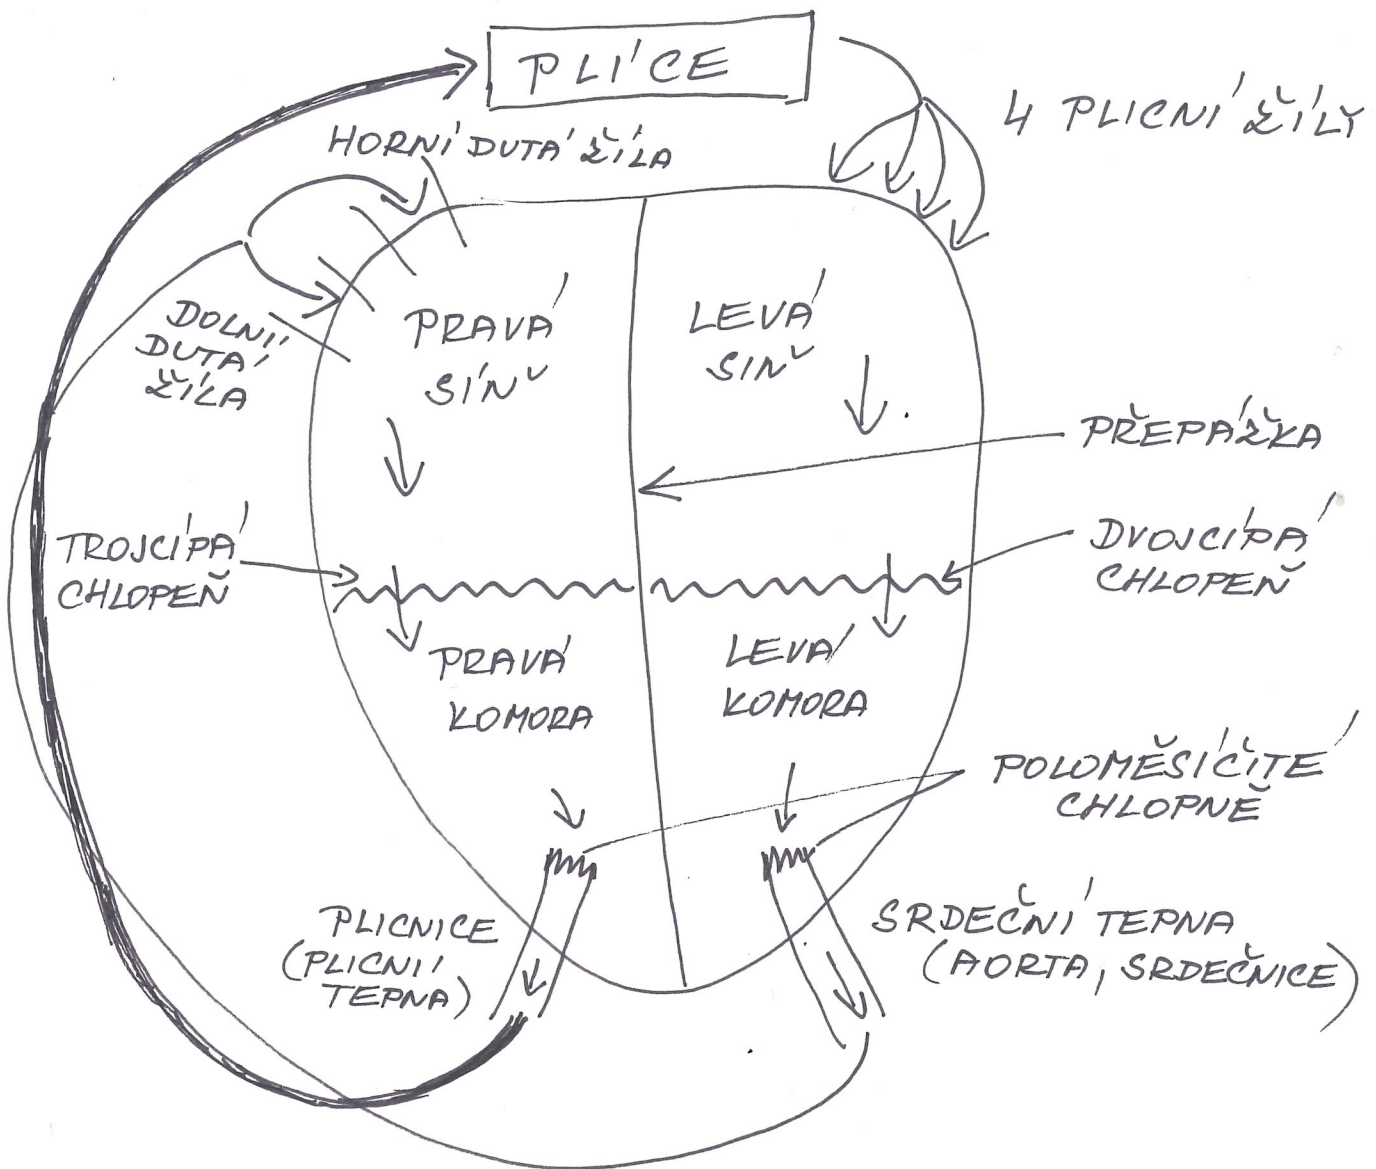 PLÍCE
4 PLICNÍ ŽÍLY
HORNÍ DUTÁ ŽÍLA
DOLNÍ
DUTÁ
ŽÍLA
PRAVÁ
SÍŇ
LEVÁ
SÍŇ
PŘEPÁŽKA
TROJCÍPÁ
CHLOPEŇ
DVOJCÍPÁ
CHLOPEŇ
PRAVÁ
KOMORA
LEVÁ
KOMORA
POLOMĚSÍČITÉ
CHLOPNĚ
PLICNICE
(PLICNÍ
TEPNA)
SRDEČNÍ TEPNA
(AORTA, SRDEČNICE)